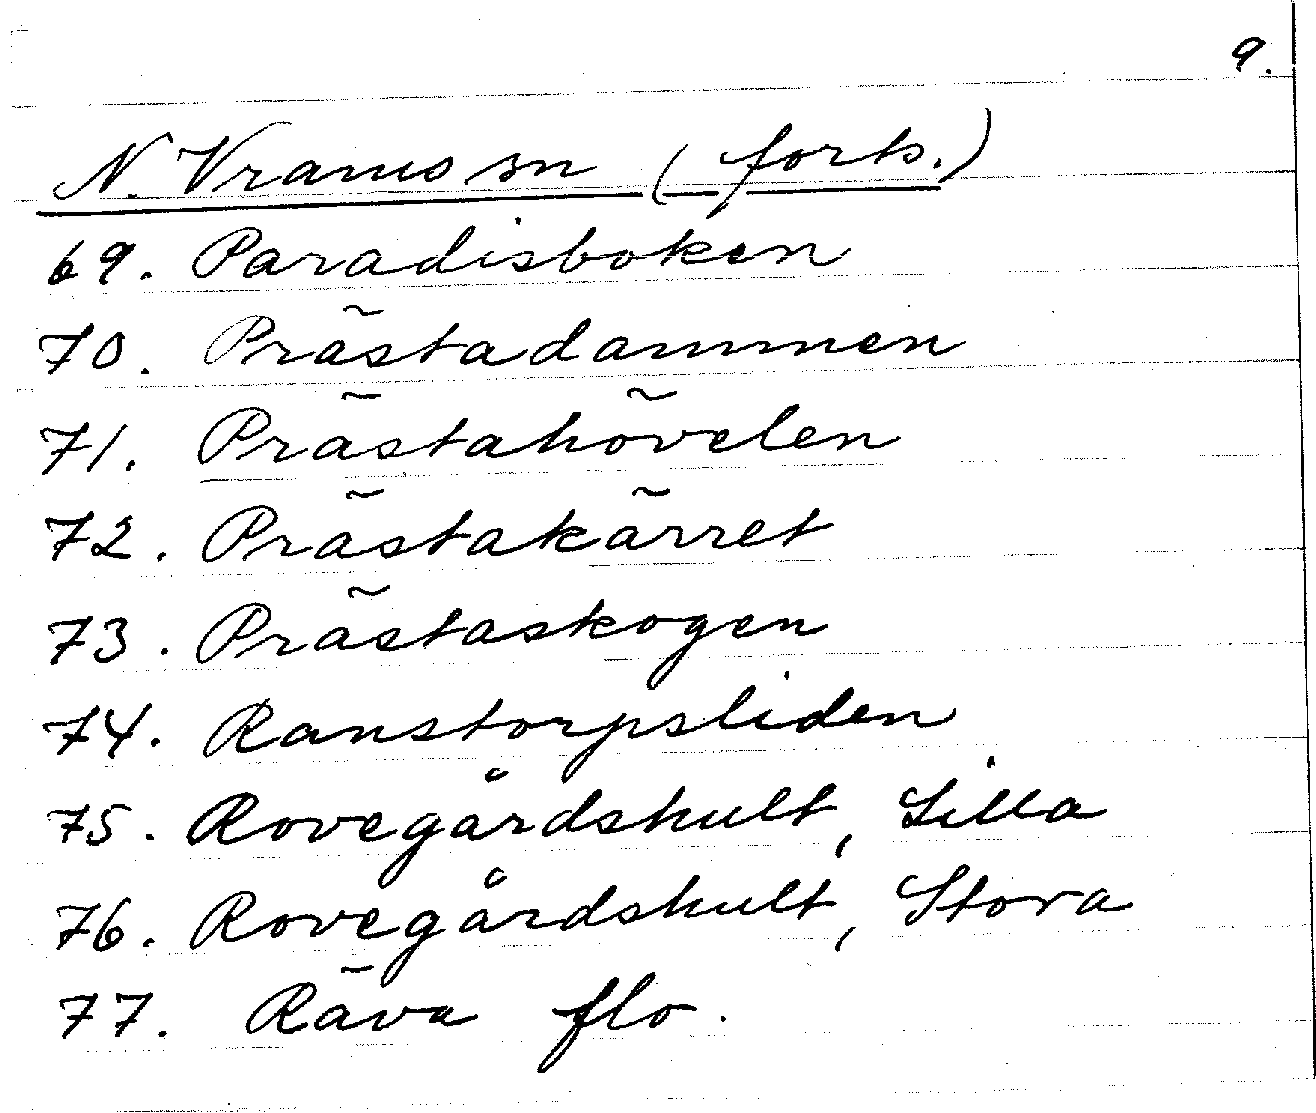 9.
N. Vrams sn (forts.)
69. Paradisboken
70. Prästadammen
71. Prästahövelen
72. Prästakärret
73. Prästaskogen
74. Ranstorpsliden
75. Rovegårdshult, Lilla
76. Rovegårdshult, Stora
77. Räva flo.